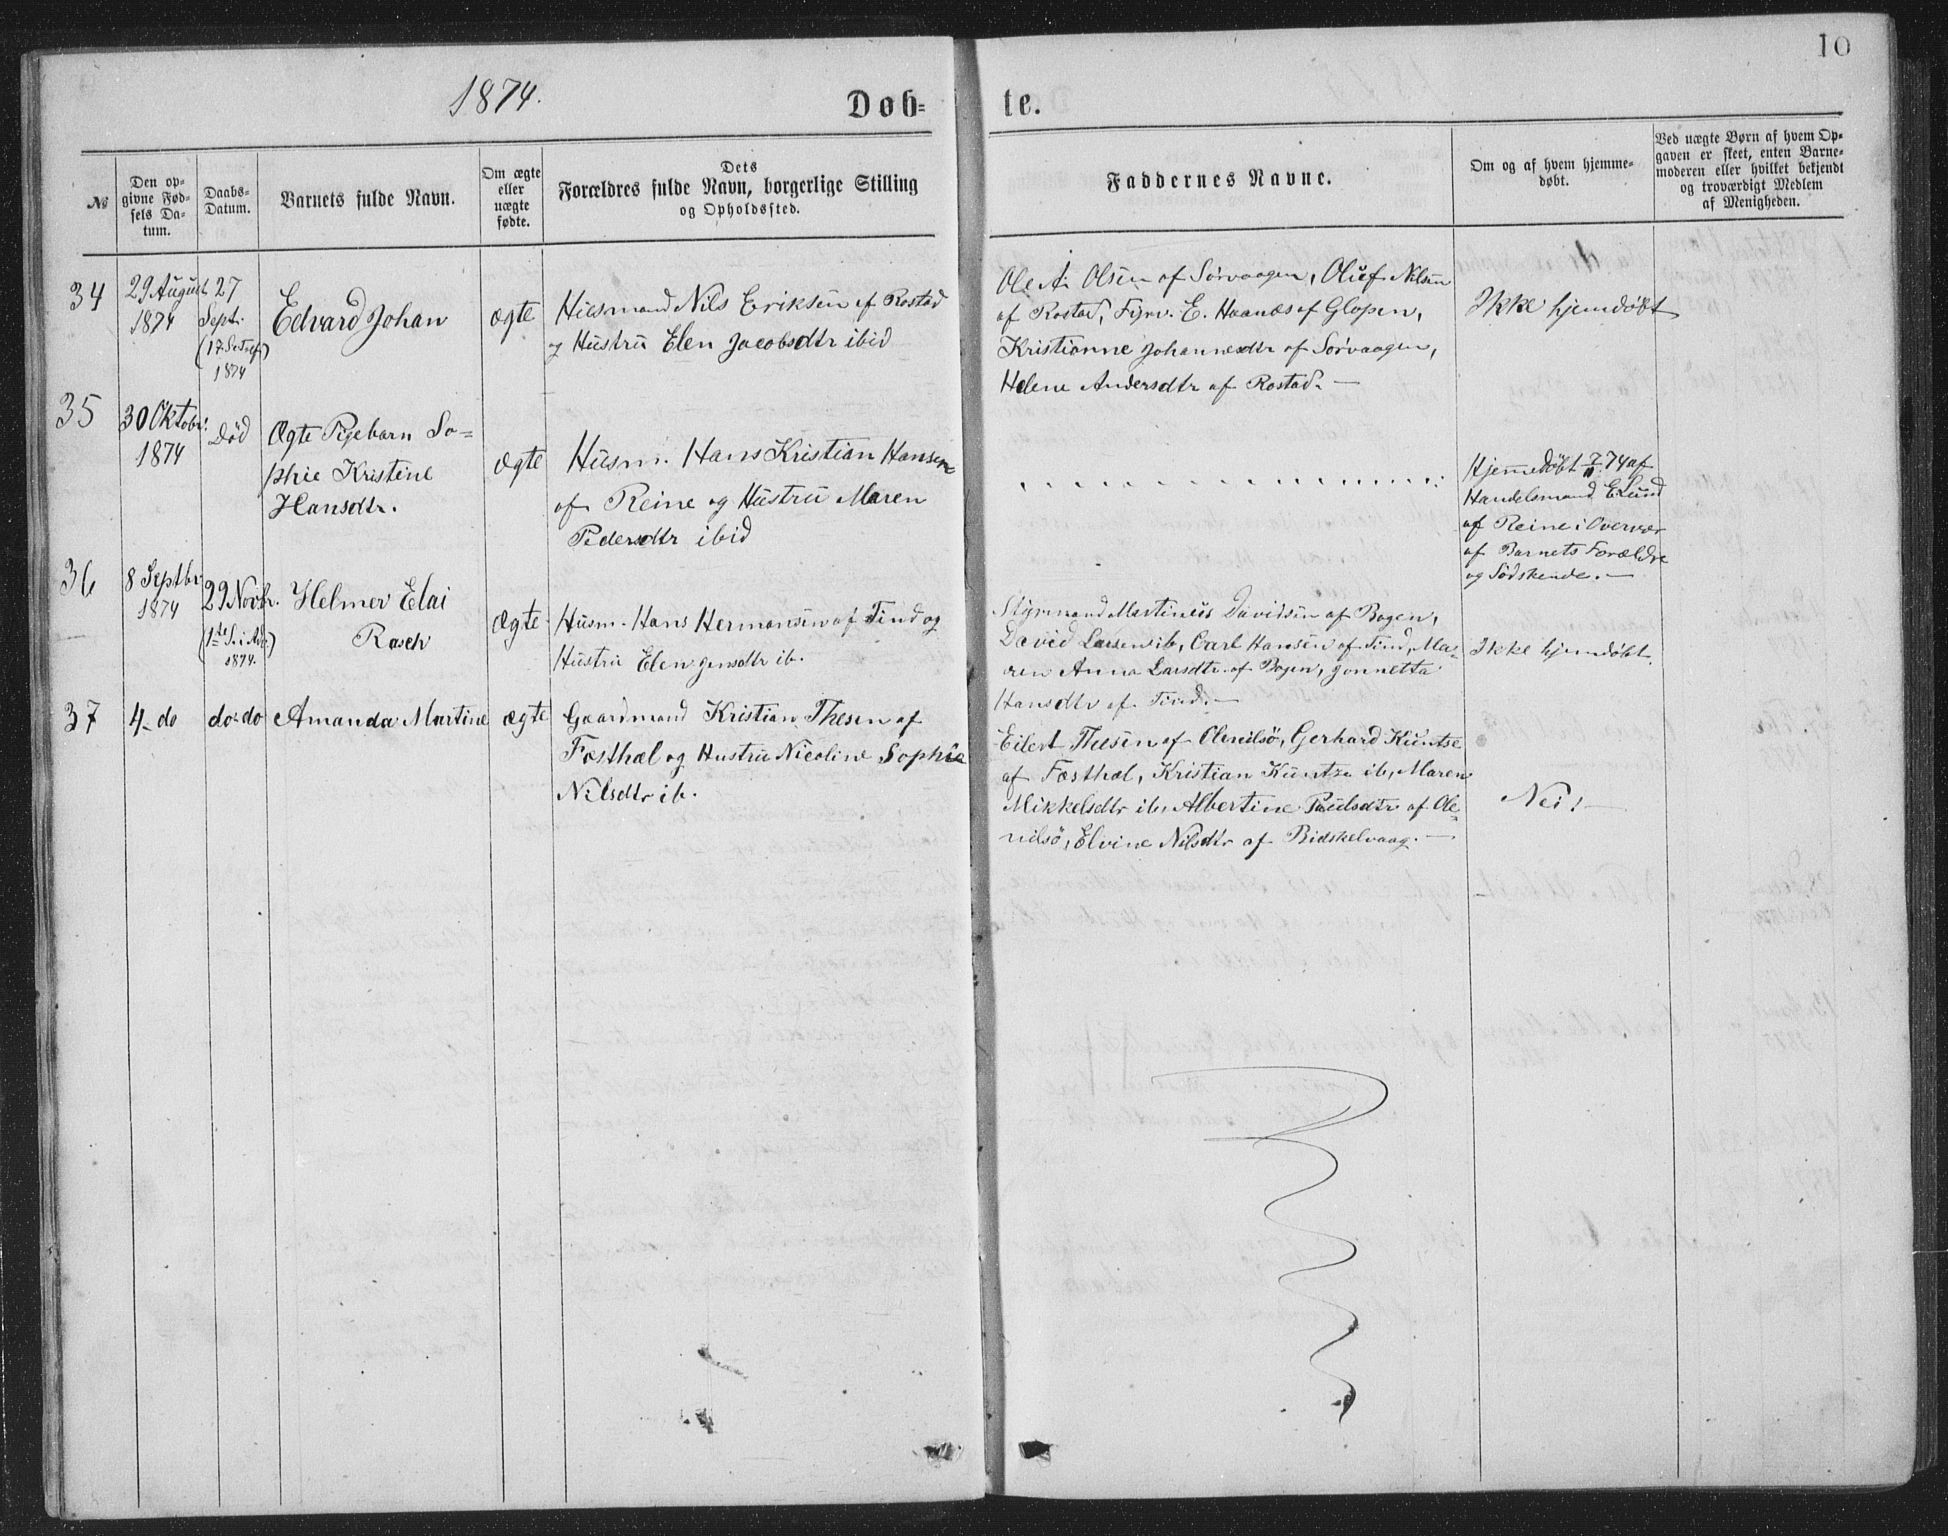 10
1874.
Døb-
te.
№
Den op-
givne Fød-
sels Da-
tum.
Daabs-
Datum.
Barnets fulde Navn.
Om ægte
eller
uægte
fødte.
Dets
Forældres fulde Navn, borgerlige Stilling
og Opholdssted.
Faddernes Navne.
Om og af hvem hjemme-
døbt.
Ved uægte Børn af hvem Op-
gaven er skeet, enten Barne-
moderen eller hvilket bekjendt
og troværdigt Medlem
af Menigheden.
34
29 August
1874
27
Sept.
1874
Edvard Johan
ægte
Husmand Nils Eriksen af Rostad
og Hustru Elen Jacobsdtr ibid
Ole A. Olsen af Sørvaagen, Oluf Nilsen
af Rostad, Fyrv. E. Haanæs af Glopen,
Kristianne Johannesdtr af Sørvaagen,
Helene Andersdtr af Rostad. —
Ikke hjemdøbt
35
30 Oktobr.
1874
Død
Ægte Pigebarn So-
phie Kristine
Hansdtr.
Ægte
Husm. Hans Kristian Hansen
af Reine og Hustru Maren
Pedersdtr ibid
Hjemmedøbt 7/11 74 af
Handelsmand E Lund
af Reine i Overvær
af Barnets Forældre
og Sødskende. —
36
8 Septbr.
1874
29 Novbr.
(1ste S. i Adv.)
1874.
Helmer Elai
Rasch
Ægte
Husm. Hans Hermansen af Tind og
Hustru Elen Jensdtr ib.
Styrmand Martinus Davidsen af Bogen,
David Larsen ib, Carl Hansen af Tind, Ma-
ren Anna Larsdtr af Bogen, Jonnetta
Hansdtr af Tind. —
Ikke hjemdøbt.
37
4 - do
do. do
Amanda Martine
ægte
Gaardmand Kristian Thesen af
Fæsthæl og Hustru Nicoline Sophie
Nilsdtr ib.
Eilert Thesen af Olenilsø, Gerhard Kuntse
af Fæsthæl, Kristian Kuntze ib, Maren
Mikkelsdtr ib, Albertine Paulsdtr af Ole-
nilsø, Elvine Nilsdtr af Bidskelvaag. —
Nei! —